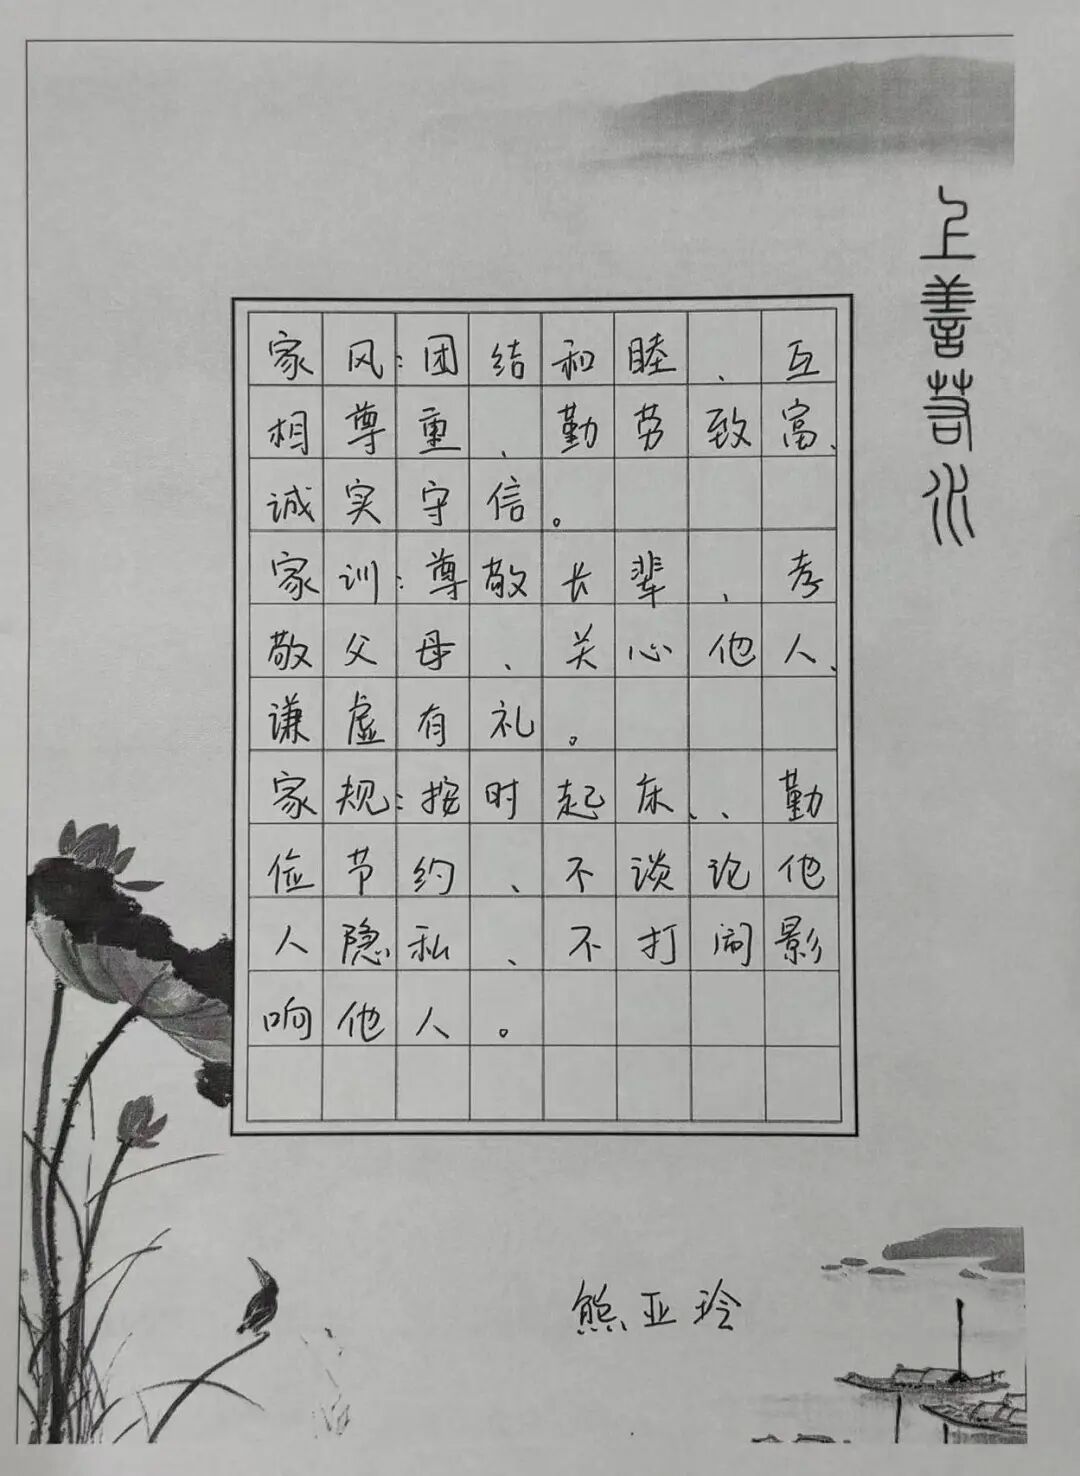 上善若水
家风:团结和睦、互
相尊重、勤劳致富、
诚实守信。
家训:尊敬长辈、孝
敬父母、关心他人、
谦虚有礼。
家规:按时起床、、勤
俭节约、不谈论他
人隐私、不打闹影
响他人。
熊亚玲